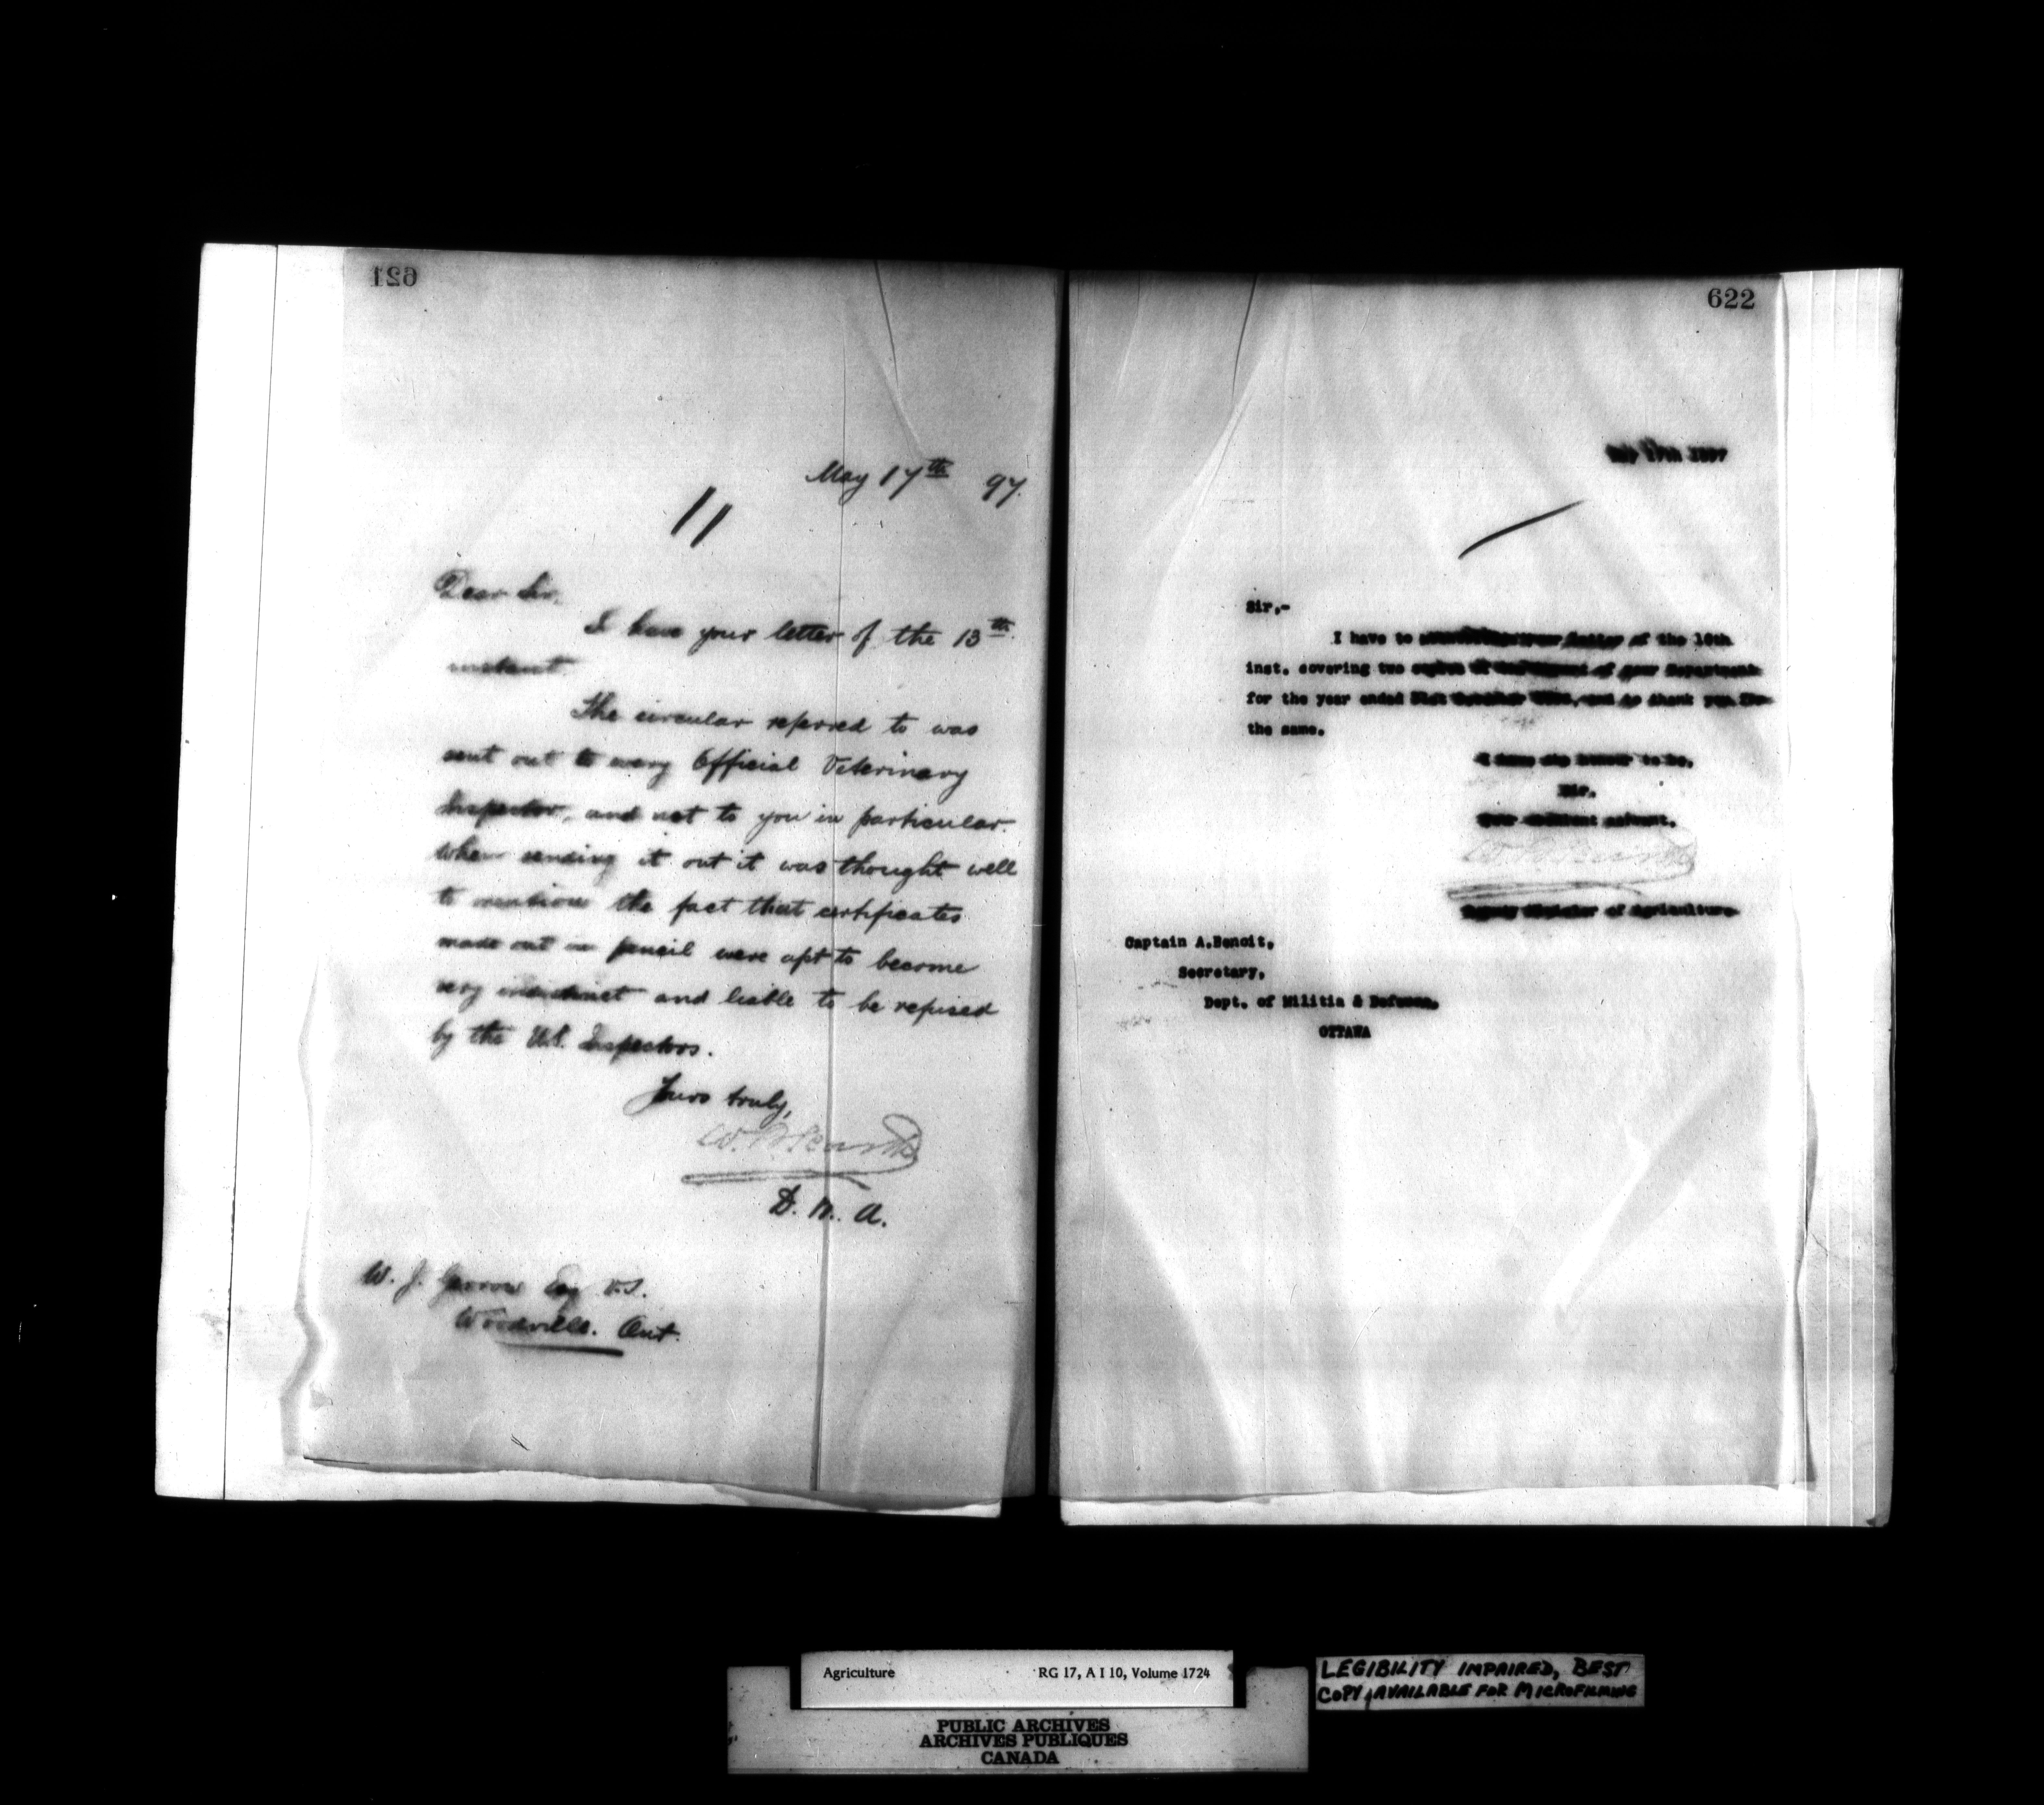 621
May 17th 97.
Dear Sir,
I have your letter of the 13th
instant.
The circular referred to was
sent out to every Official Veterinary
Inspector, and not to you in particular.
When sending it out it was thought well
to mention the fact that certificates
made out in pencil were apt to become
very indistinct and liable to be refused
by the U.S. Inspectors.
Yours truly,
D. M. A.
W. J. Esq V.S.
Woodville. Ont.
622
Sir,-
I have to your letter of the 10th
inst. covering two copies of the of your Department
for the year ended and to thank you for
the same.
I have the honour to be,
Sir,
Your obedient servant,
Deputy Minister of Agriculture
Captain A.Benoit,
Secretary,
Dept. of Militia & Defence,
OTTAWA
Agriculture RG 17, A I 10, Volume 1724
LEGIBILITY IMPAIRED, BEST
COPY AVAILABLE FOR MICROFILMING
PUBLIC ARCHIVES
ARCHIVES PUBLIQUES
CANADA